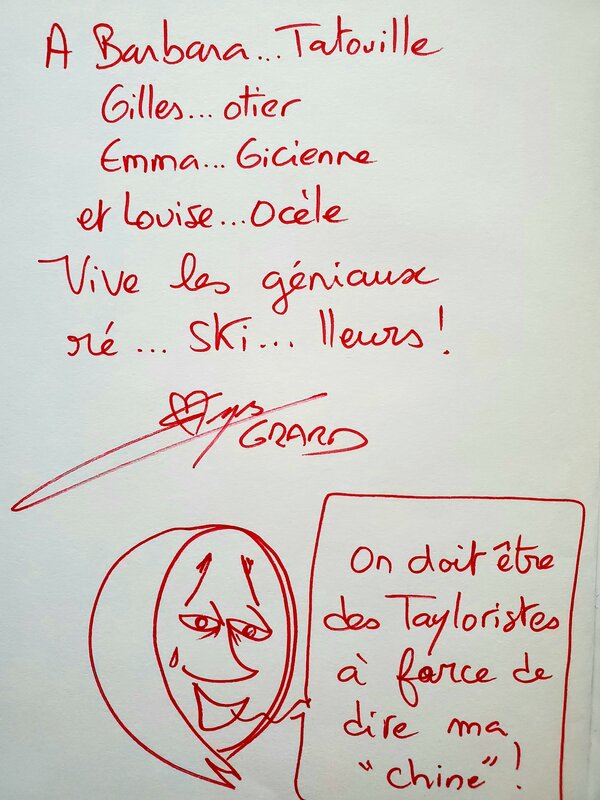 A Barbara... Tatouille
Gilles... otier
Emma... Gicienne
et Louise... Ocèle
Vive les géniaux
ré... Ski... lleurs !
GRARD
On doit être
des Tayloristes
à force de
dire ma
"chine" !